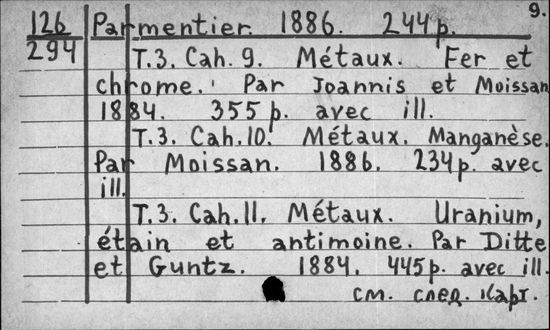 9.
126 Parmentier. 1886. 244 p.
294 T.3. Cah. 9. Métaux. Fer et
chrome. Par Joannis et Moissan
1884. 355 p. avec ill.
T.3. Cah. 10. Métaux. Manganèse.
Par Moissan. 1886. 234 p. avec
ill.
T.3. Cah. 11. Métaux. Uranium,
étain et antimoine. Par Ditte
et Guntz. 1884. 445 p. avec ill.
см. след. карт.